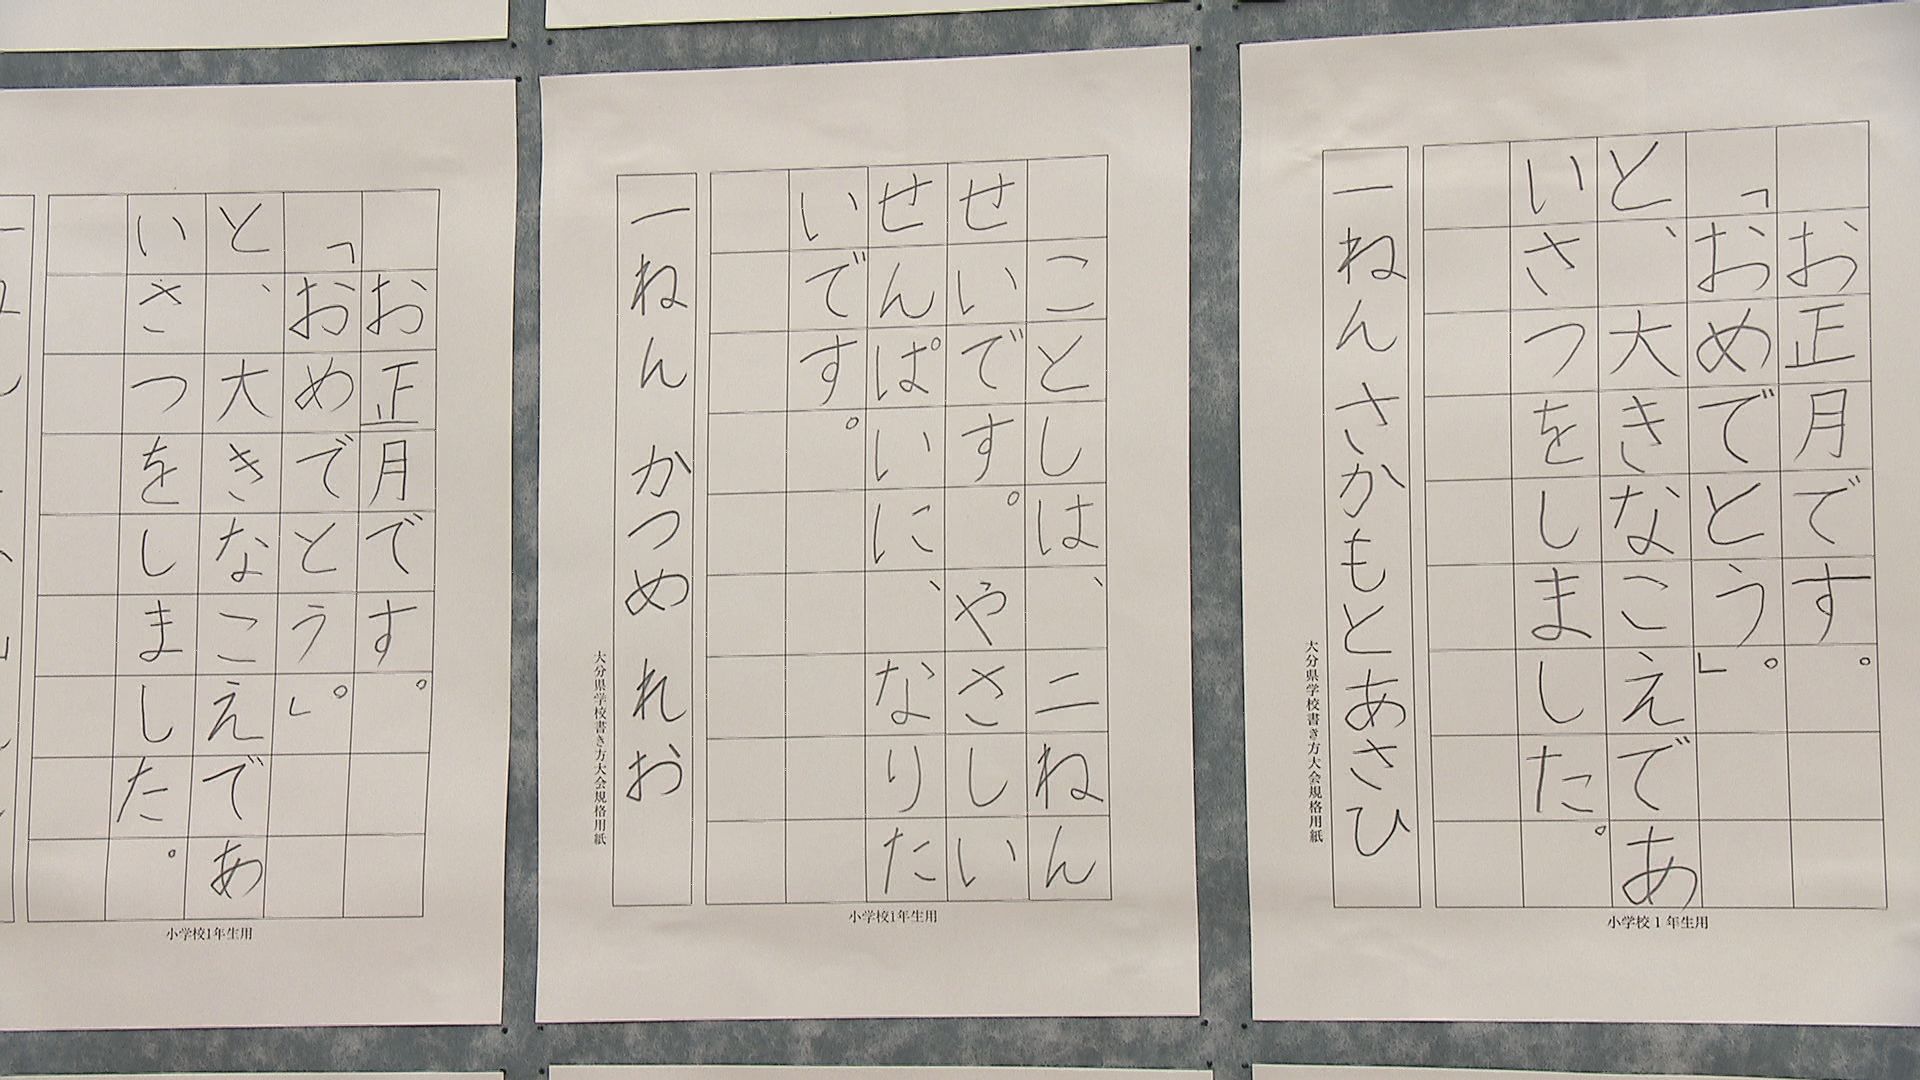 お正月です。
「おめでとう。」
と、大きなこえであ
いさつをしました。
一ねんさかもとあさひ
大分県学校書き方大会規格用紙
小学校1年生用
ことしは、二ねん
せいです。やさしい
せんぱいに、なりた
いです。
一ねん かつめ れお
大分県学校書き方大会規格用紙
小学校1年生用
お正月です。
「おめでとう。」
と、大きなこえであ
いさつをしました。
小学校1年生用